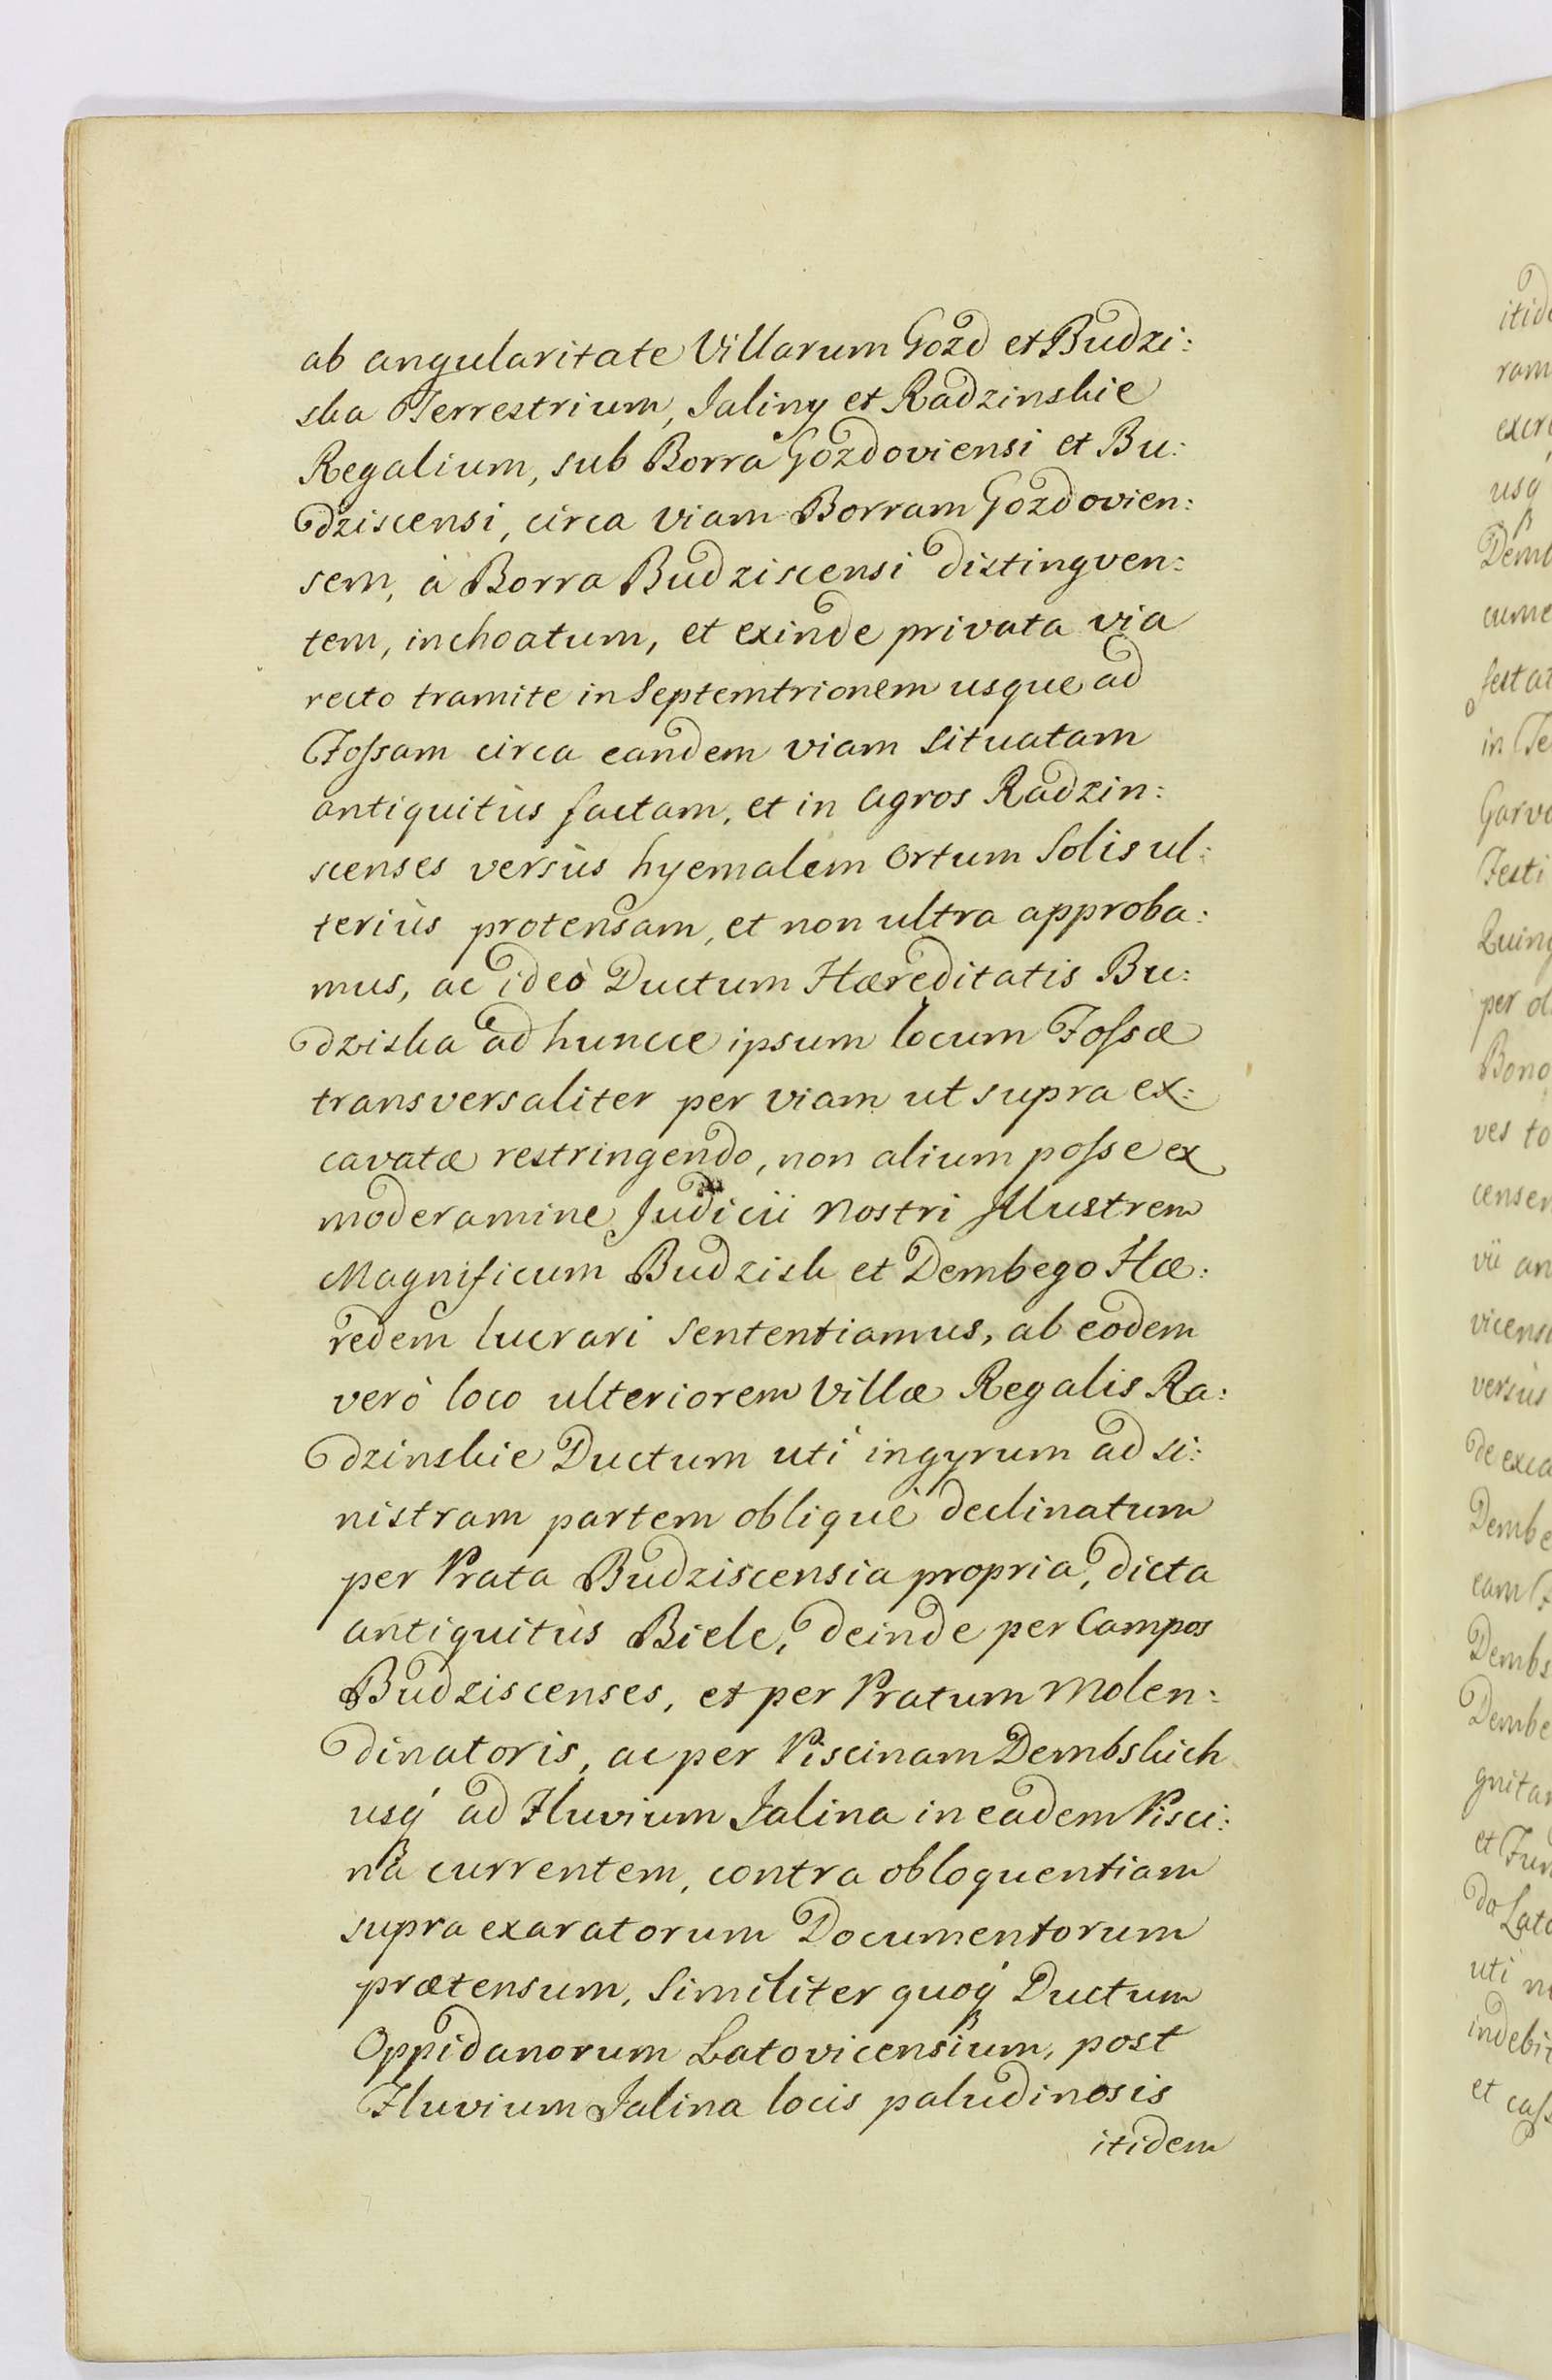 ab angularitate Villarum Gozd et Budzi:
ska Terrestrium, Jaliny et Radzinskie
Regalium, sub Borra Gozdoviensi et Bu:
dziscensi, circa viam Borram Gozdovien:
sem, à Borra Budziscensi distingven:
tem, inchoatum, et exinde privata via
recto tramite in Septemtrionem usque ad
Fossam circa eandem viam situatam
antiquitùs factam, et in Agros Radzin:
scenses versùs hyemalem Ortum Solis ul:
teriùs protensam, et non ultra approba:
mus, ac ideò Ductum Hæreditatis Bu:
dziska ad huncce ipsum locum Fossæ
transversaliter per viam ut supra ex:
cavatæ restringendo, non alium posse ex
moderamine Judicii Nostri Illustrem
Magnificum Budzisk et Dembego Hæ:
redem lucrari Sententiamus, ab eodem
verò loco ulteriorem Villæ Regalis Ra:
dzinskie Ductum uti in gyrum ad si:
nistram partem obliquè declinatum
per Prata Budziscensia propria, dicta
antiquitùs Biele, deinde per Campos
Budziscenses, et per Pratum Molen:
dinatoris, ac per Piscinam Dembskich
usq́ ad Fluvium Jalina in eadem Pisci:
na currentem, contra obloquentiam
supra exaratorum Documentorum
prætensum, Similiter quoq́ Ductum
Oppidanorum Latovicensium, post
Fluvium Jalina locis paludinosis
itidem